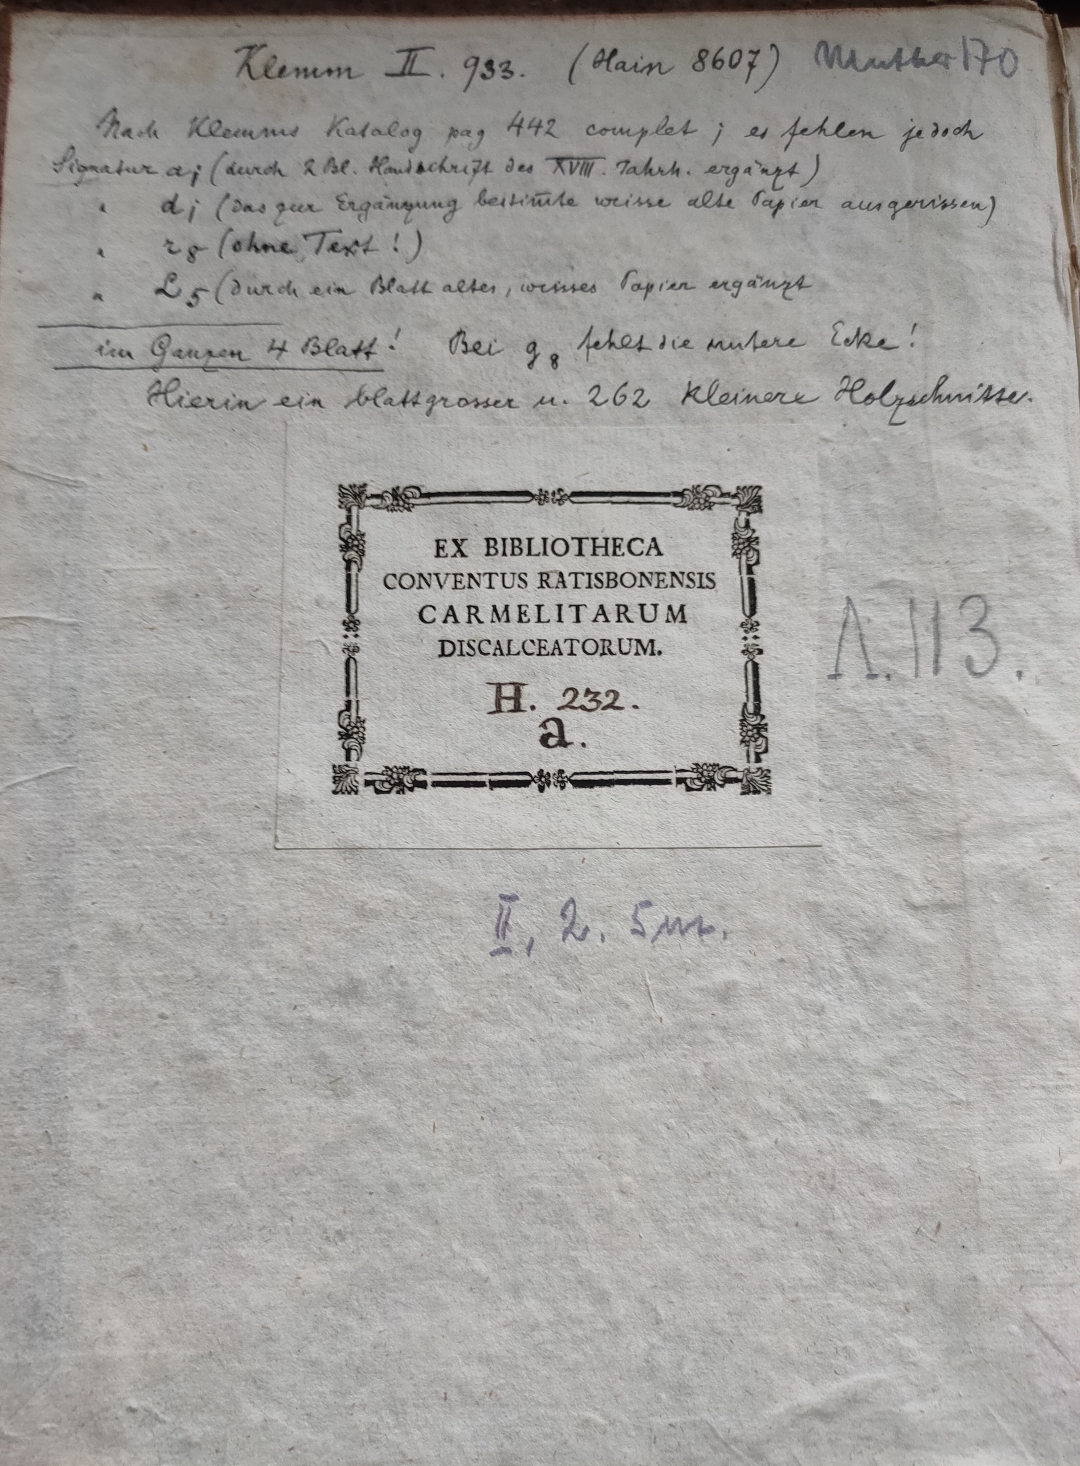 Klemm II. 933. (Hain 8607) Muther 170
Nach Klemms Katalog pag 442 complet; es fehlen jedoch
Signatur aj (durch 2 Bl. Handschrift des XVIII. Jahrh. ergänzt)
" dj (das zur Ergänzung bestim̅te weisse alte Papier ausgerissen)
" r8 (ohne Text!)
" L5 (durch ein Blatt altes, weisses Papier ergänzt
im Ganzen 4 Blatt! Bei g8 fehlt die untere Ecke!
Hierin ein blattgrosser u. 262 kleinere Holzschnitte.
EX BIBLIOTHECA
CONVENTUS RATISBONENSIS
CARMELITARUM
DISCALCEATORUM.
H. 232.
a.
A. 113.
II, 2. 5